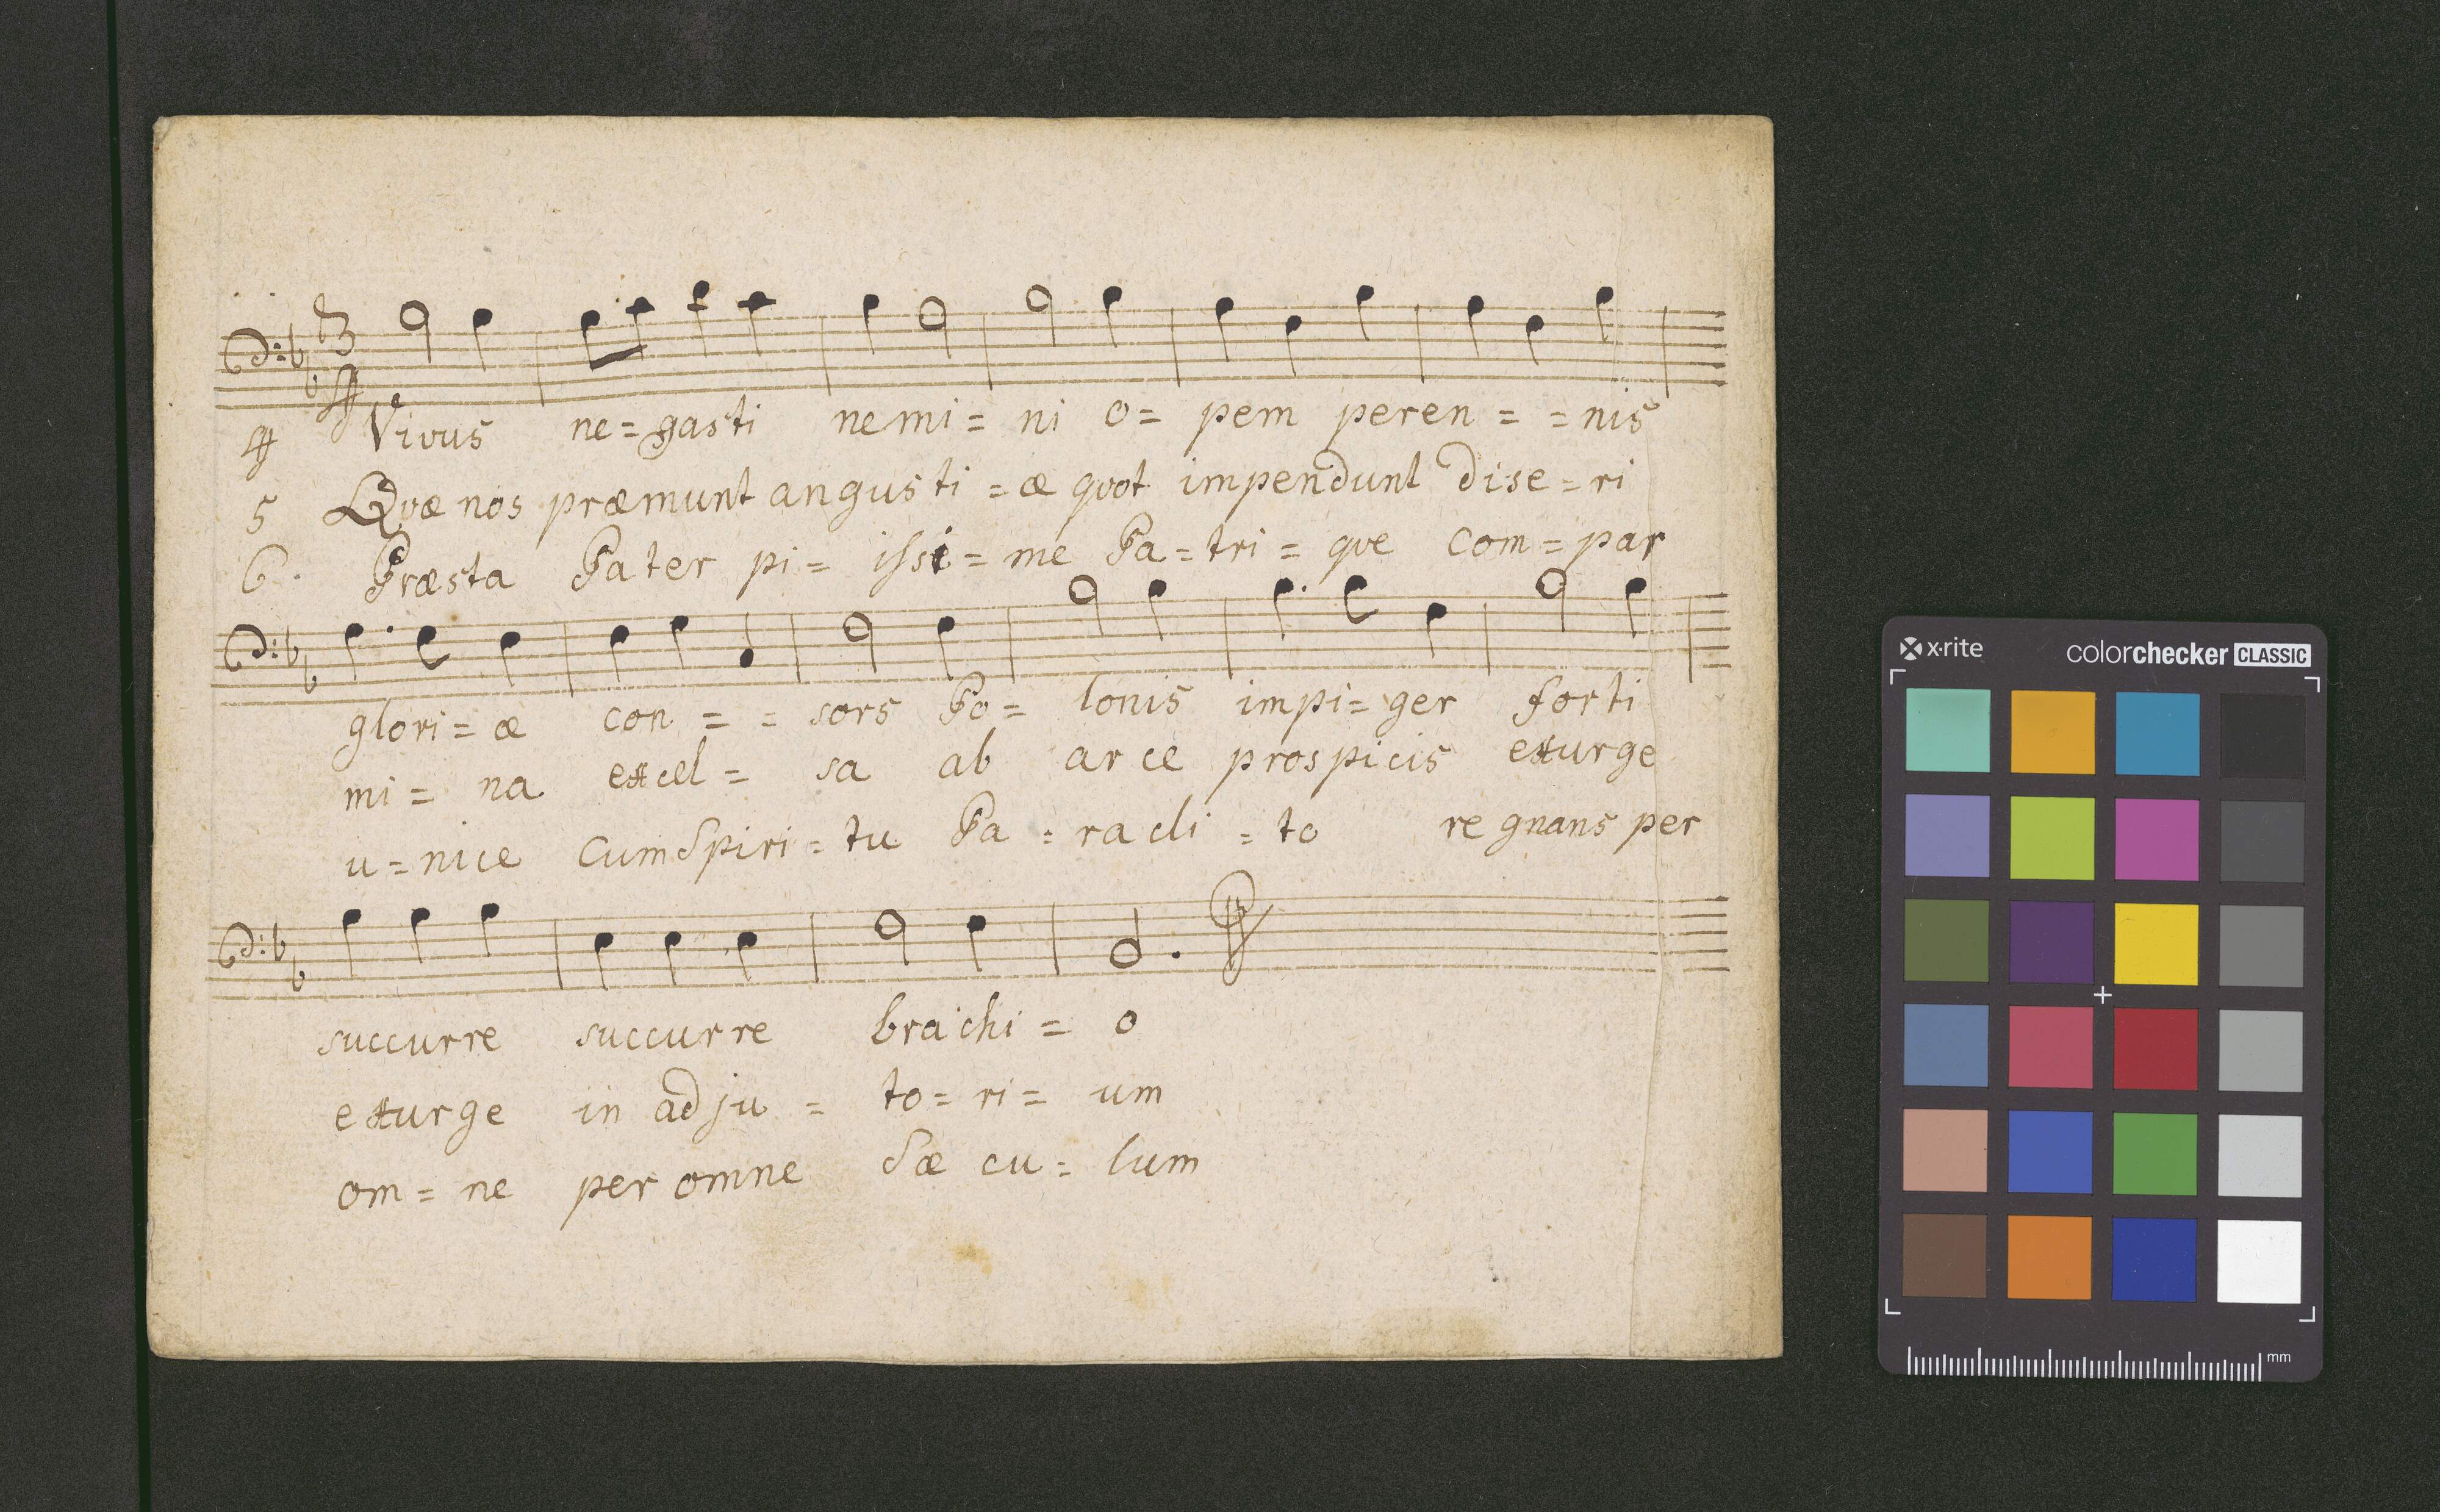 3
4 Vivus ne=gasti nemi= ni o= pem peren = = nis
5 Qvæ nos præmunt angusti =æ qvot impendunt dise=ri
6. Præsta Pater pi= issi= me Pa=tri= qve com=par
glori=æ con = = sors Po= lonis impi=ger forti
mi= na excel= sa ab arce prospicis exurge
u=nice cum Spiri=tu Pa = racli = to regnans per
succurre succurre brachi= o
exurge in adju = to= ri= um
om= ne per omne Sæ cu= lum
x·rite colorchecker CLASSIC
mm